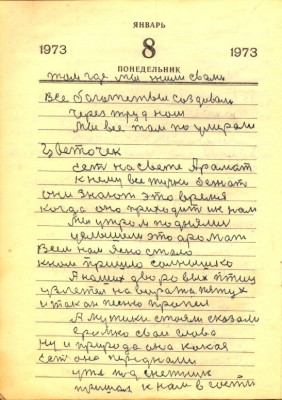 ЯНВАРЬ
1973 8 1973
ПОНЕДЕЛЬНИК
там где мы жили свами
все богатетвы создовали
через труд наш
Мы все там по умирали
Цветочек
сет на свете Арамат
к нему все турки бежат
они знают это время
когда оно приходит ик нам
Мы утром подняли
услышели это аромат
Всем нам ясно стало
кнам пришло солнышко
А наших дворовых птиц
взлетел на ваража петух
и так он песню пропел
А мужики стояли сказали
громко сваи слова
Ну и природа она какая
сет оно перднами
уже под
пришол к нам в гости